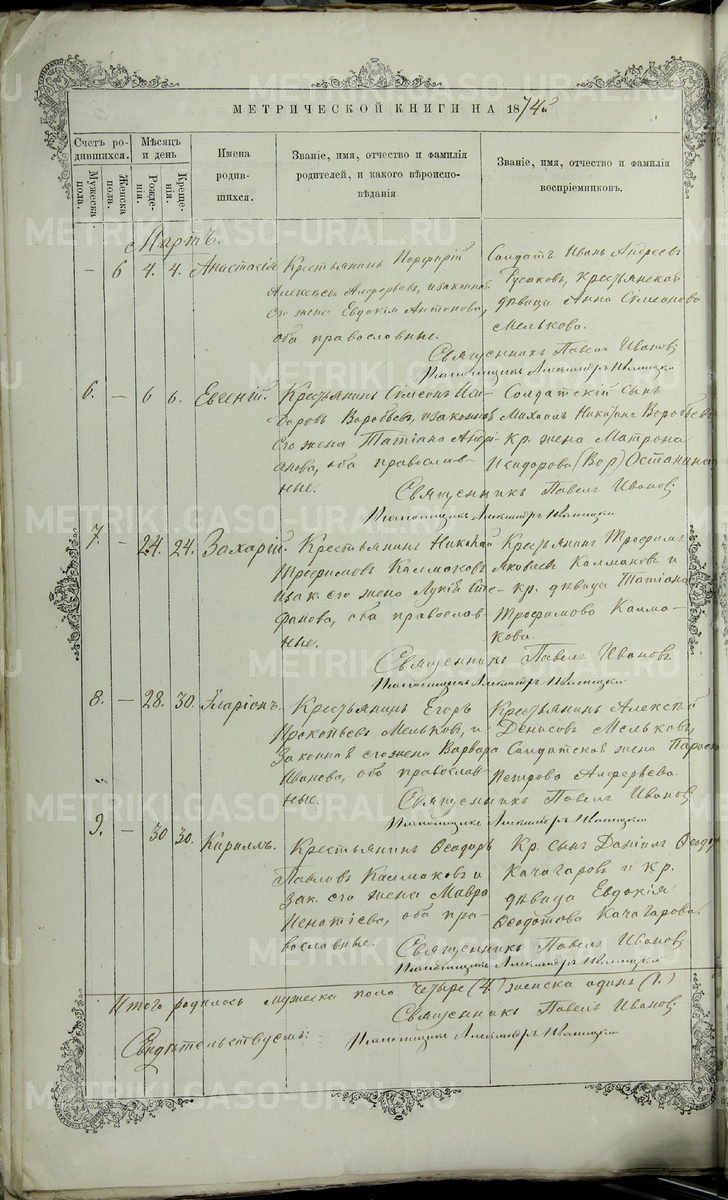 МЕТРИЧЕСКОЙ КНИГИ НА 1874й
Счетъ ро-
дившихся.
Мужеска
пола.
Женска
пола.
Мѣсяцъ
и день
Рожде-
нія.
Креще-
нія.
Имена
родив-
шихся.
Званіе, имя, отчество и фамилія
родителей, и какого вѣроиспо-
вѣданія.
Званіе, имя, отчество и фамилія
воспріемниковъ.
Мартъ.
– 6 4. 4. Анастасія
Крестьянинъ Порфирій
Алексѣевъ Алферьевъ, и законная
его жена Евдокія Антонова,
оба православные.
Солдатъ Иванъ Андреевъ
Русаковъ, Крестьянская
дѣвица Анна Сѵмеонова
Мелькова.
Священникъ Павелъ Ивановъ
Александръ
6. – 6 6. Евсений.
Крестьянинъ Сѵмеонъ Иси-
доровъ Воробьевъ, и законная
его жена Татіана Андрі-
анова, оба православ-
ные.
Солдатскій сынъ
Михаилъ Никитинъ Воробьевъ
кр. жена Матрона
Исидорова (Вор) Останина
Священникъ Павелъ Ивановъ
Александръ
7. – 24. 24. Захарій.
Крестьянинъ Николай
Трофимовъ Калмаковъ
и зак. его жена Лукія Сте-
фанова, оба православ-
ные.
Крестьянинъ Трофимъ
Яковлевъ Калмаковъ и
кр. дѣвица Татіана
Трофимова Калма-
кова.
Священникъ Павелъ Ивановъ
Александръ
8. – 28. 30. Иларіонъ.
Крестьянинъ Егоръ
Прокопьевъ Мельковъ, и
Законная его жена Варвара
Иванова, оба православ-
ные.
Крестьянинъ Алексѣй
Денисовъ Мельковъ,
Солдатская жена
Петрова Алферьева.
Священникъ Павелъ Ивановъ
Александръ
9. – 30 30. Кириллъ.
Крестьянинъ Ѳеодоръ
Павловъ Калмаковъ и
Зак. его жена Мавра
оба пра-
вославные.
Кр. сынъ Даніилъ
Качагаровъ и кр.
дѣвица Евдокія
Ѳеодотова Качагарова.
Священникъ Павелъ Ивановъ
Александръ
Итого родилось мужеска пола четыре (4.) женска одинъ (1.)
Священникъ Павелъ Ивановъ
Свидѣтельствуемъ:
Александръ
METRIKI.GASO-URAL.RU